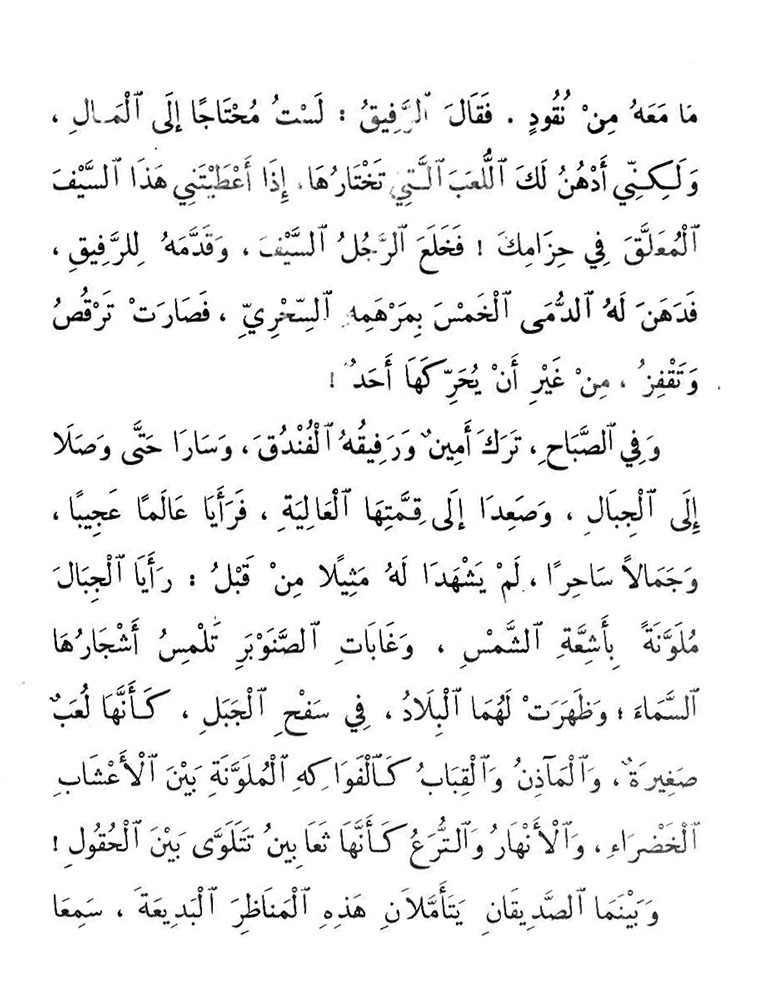 مَا مَعَهُ مِنْ نُقُودٍ . فَقَالَ ٱلرَّفِيقُ : لَسْتُ مُحْتَاجًا إِلَى ٱلْمَالِ ،
وَلَكِنِّي أَدْهُنُ لَكَ ٱللُّعَبَ ٱلَّتِي تَخْتَارُهَا، إِذَا أَعْطَيْتَنِي هَذَا ٱلسَّيْفَ
ٱلْمُعَلَّقَ فِي حِزَامِكَ ! فَخَلَعَ ٱلرَّجُلُ ٱلسَّيْفَ ، وَقَدَّمَهُ لِلرَّفِيقِ ،
فَدَهَنَ لَهُ ٱلدُّمَى ٱلْخَمْسَ بِمَرْهَمِهِ ٱلسِّحْرِيِّ ، فَصَارَتْ تَرْقُصُ
وَتَقْفِزُ ، مِنْ غَيْرِ أَنْ يُحَرِّكَهَا أَحَدٌ !
وَفِي ٱلصَّبَاحِ ، تَرَكَ أَمِينٌ وَرَفِيقُهُ ٱلْفُنْدُقَ ، وَسَارَا حَتَّى وَصَلَا
إِلَى ٱلْجِبَالِ ، وَصَعِدَا إِلَى قِمَّتِهَا ٱلْعَالِيَةِ ، فَرَأَيَا عَالَمًا عَجِيبًا ،
وَجَمَالاً سَاحِرًا ، لَمْ يَشْهَدَا لَهُ مَثِيلًا مِنْ قَبْلُ : رَأَيَا ٱلْجِبَالَ
مُلَوَّنَةً بِأَشِعَّةِ ٱلشَّمْسِ ، وَغَابَاتِ ٱلصَّنَوْبَرِ تَلْمِسُ أَشْجَارُهَا
ٱلسَّمَاءَ ؛ وَظَهَرَتْ لَهُمَا ٱلْبِلَادُ ، فِي سَفْحِ ٱلْجَبَلِ ، كَأَنَّهَا لُعَبٌ
صَغِيرَةٌ ، وَٱلْمَآذِنُ وَٱلْقِبَابُ كَٱلْفَوَاكِهِ ٱلْمُلَوَّنَةِ بَيْنَ ٱلْأَعْشَابِ
ٱلْخَضْرَاءِ ، وَٱلْأَنْهَارُ وَٱلتُّرَعُ كَأَنَّهَا ثَعَابِينُ تَتَلَوَّى بَيْنَ ٱلْحُقُولِ !
وَبَيْنَمَا ٱلصَّدِيقَانِ يَتَأَمَّلَانِ هَذِهِ ٱلْمَنَاظِرَ ٱلْبَدِيعَةَ ، سَمِعَا